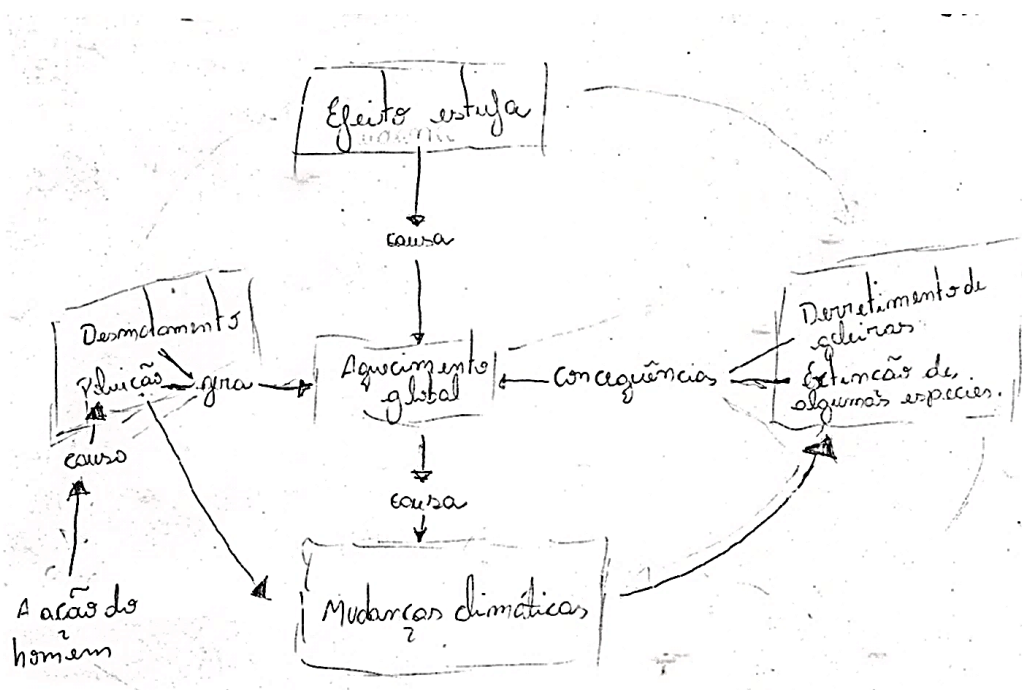 Efeito estufa
causa
Desmatamento
Poluição
gera
Aquecimento
global
Concequências
Derretimento de
geleiras
Extincão de
algumas espécies.
causo
causa
A ação do
homem
Mudanças climáticas